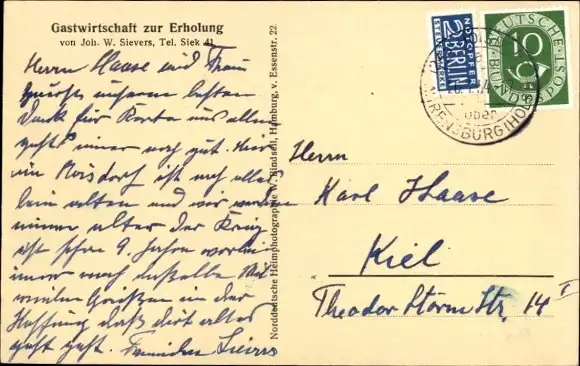 Gastwirtschaft zur Erholung
von Joh. W. Sievers, Tel. Siek 41
Herrn Haase und Frau
unseren besten
Dank für Karte uns allen
geht immer noch gut. Hier
in ist noch alles
beim alten und wir werden
immer älter der Krieg
ist schon 9 Jahre vorbei
immer noch dasselbe Mit
vielen Grüßen in der
Hoffnung daß dort alles
geht gut. Familie Sievers
Norddeutsche Heimphotographie W. Bindseil, Hamburg, v. Essenstr. 22
NOTOPFER
2 BERLIN
STEUERMARKE
DEUTSCHE
BUNDESPOST
10
über
AHRENSBURG (HOLST)
Herrn
Karl Haase
Kiel
Theodor Storm Str. 14 I